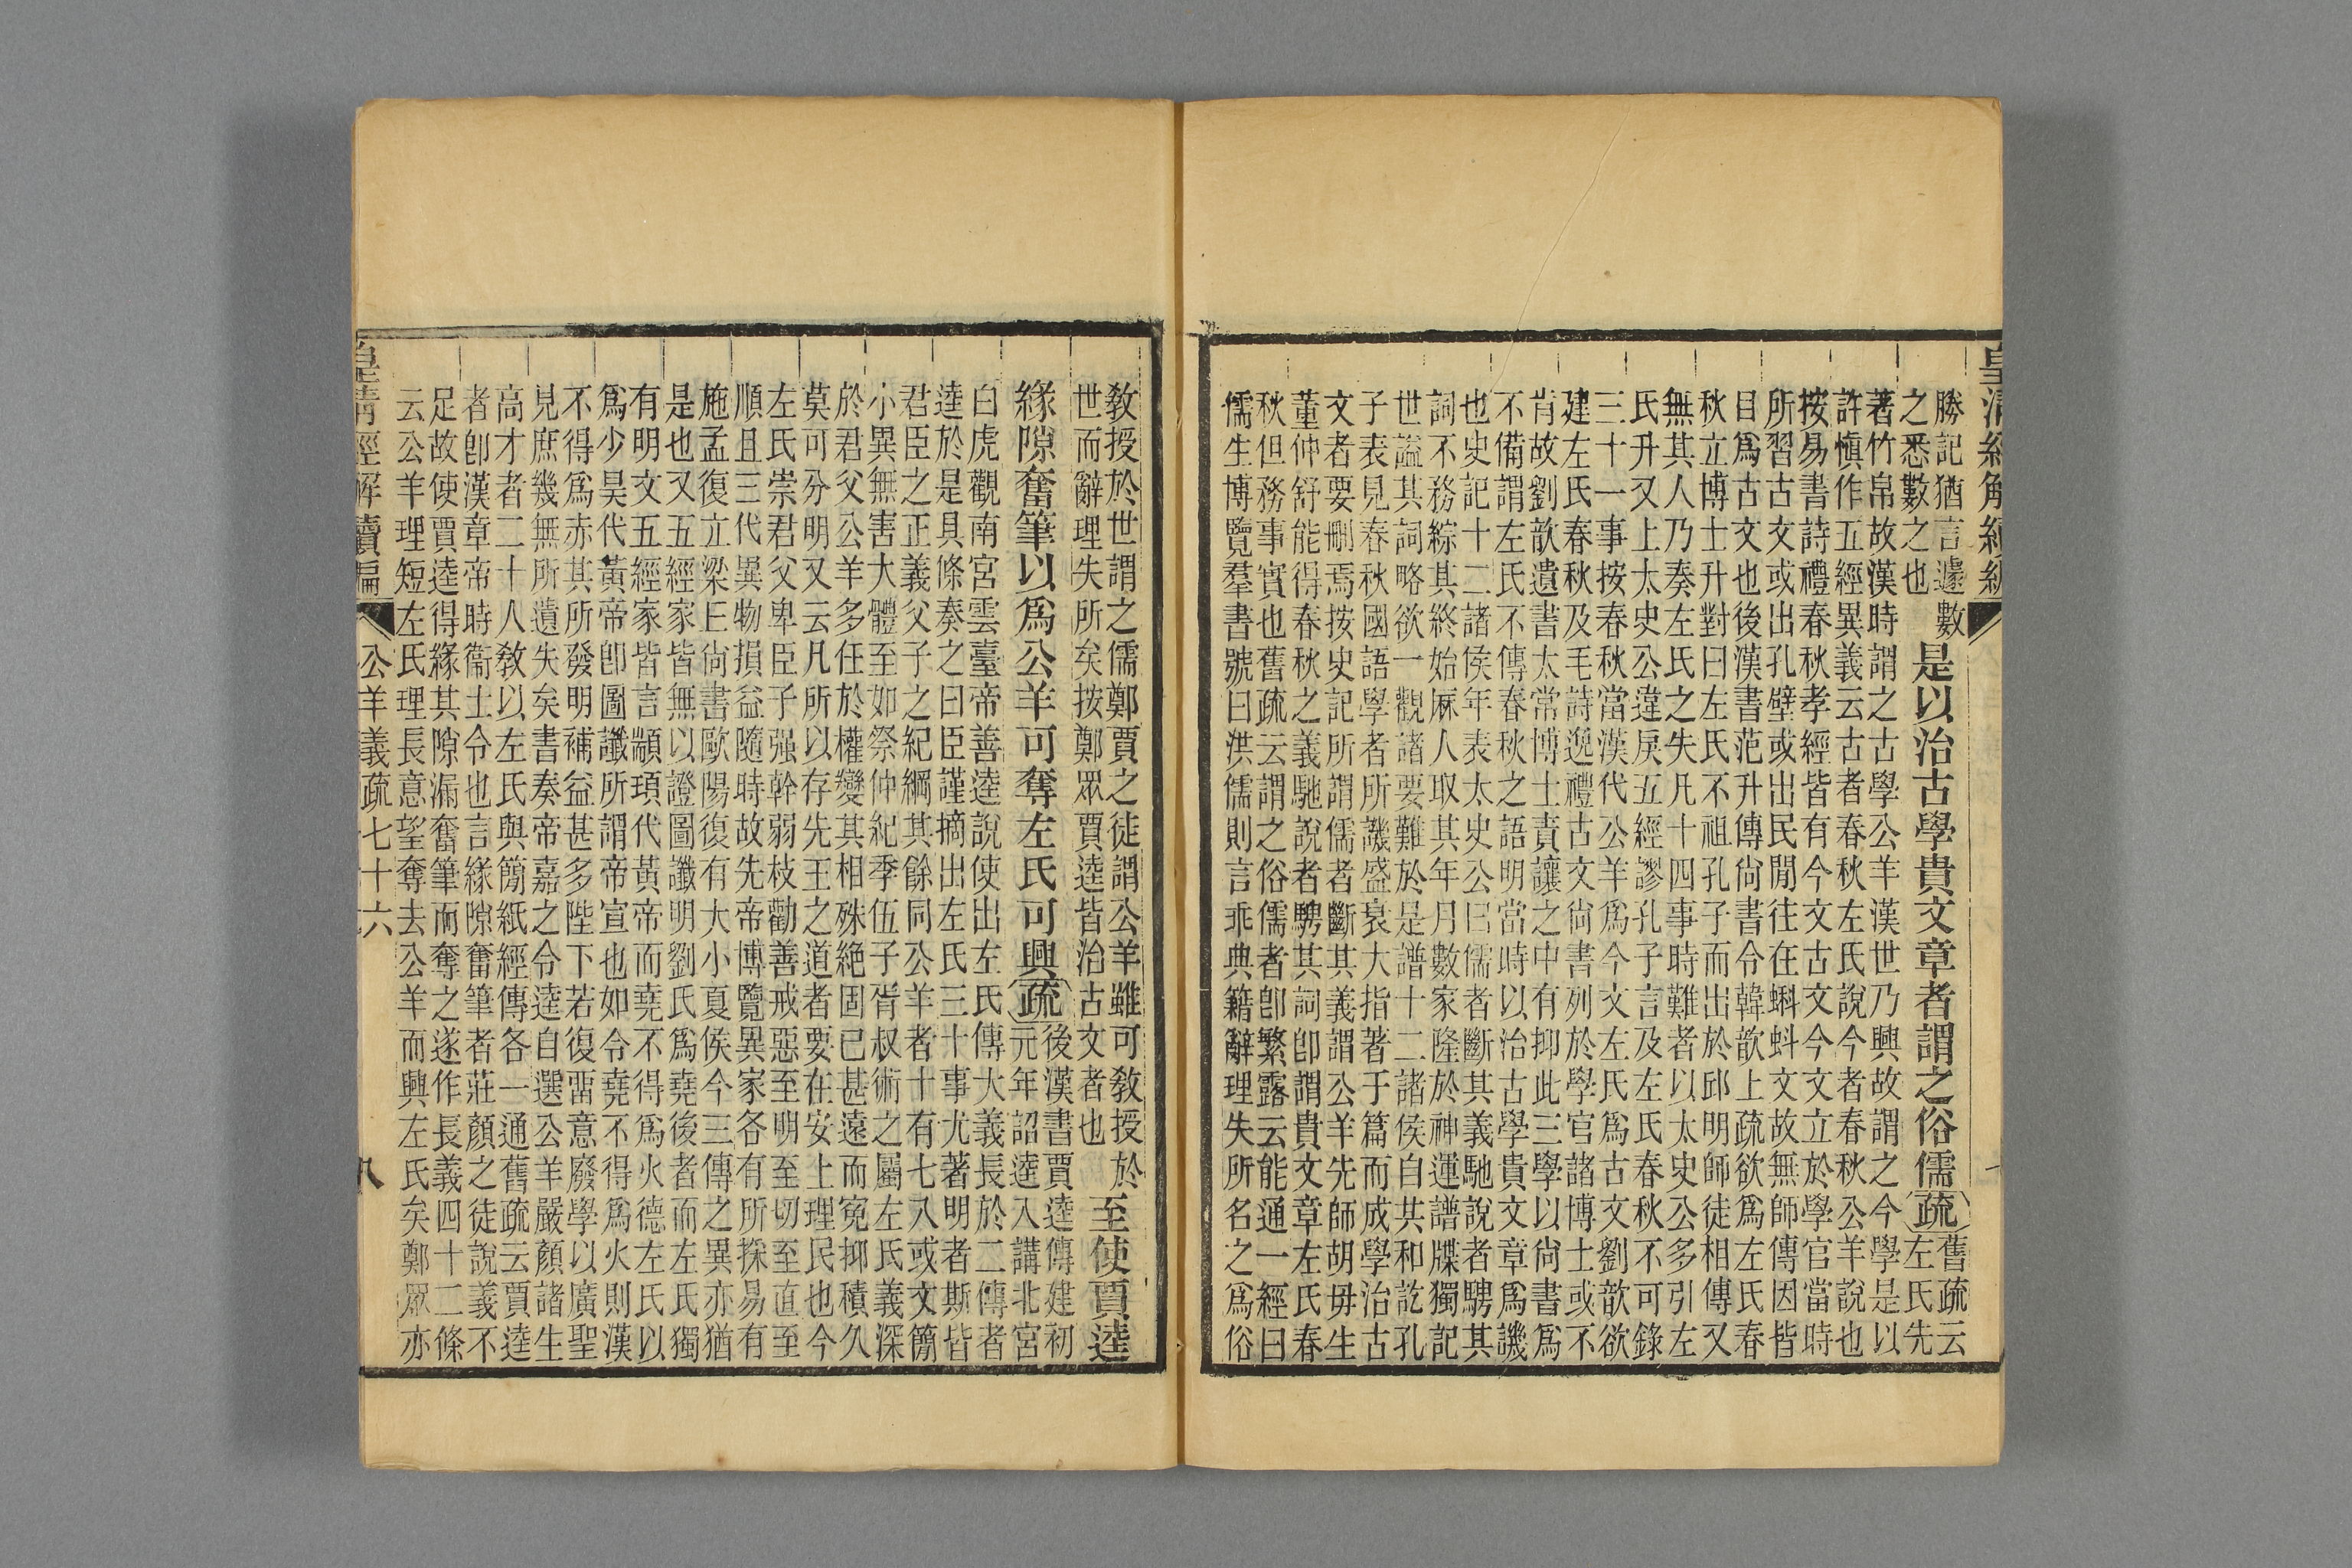 皇清經解續編
勝記猶言遽數
之悉數之也
是以治古學貴文章者謂之俗儒疏
舊疏云
左氏先
著竹帛故漢時謂之古學公羊漢世乃興故謂之今學是以
許慎作五經異義云古者春秋左氏說今者春秋公羊說也
按易書詩禮春秋孝經皆有今文古文今文立於學官當時
所習古文或出孔壁或出民閒往在蝌蚪文故無師傳因皆
目爲古文也後漢書范升傳尙書令韓歆上疏欲爲左氏春
秋立博士升對曰左氏不祖孔子而出於邱明師徒相傳又
無其人乃奏左氏之失凡十四事時難者以太史公多引左
氏升又上太史公違戾五經謬孔子言及左氏春秋不可錄
三十一事按春秋當漢代公羊爲今文左氏爲古文劉歆欲
建左氏春秋及毛詩逸禮古文尙書列於學官諸博士或不
肯故劉歆遺書太常博士責讓之中有抑此三學以尙書爲
不備謂左氏不傳春秋之語明當時以治古學貴文章爲譏
也史記十二諸侯年表太史公曰儒者斷其義馳說者騁其
詞不務綜其終始厤人取其年月數家隆於神運譜牒獨記
世謚其詞略欲一觀諸要難於是譜十二諸侯自共和訖孔
子表見春秋國語學者所譏盛衰大指著于篇而成學治古
文者要刪焉按史記所謂儒者斷其義謂公羊先師胡毋生
董仲舒能得春秋之義馳說者騁其詞卽謂貴文章左氏春
秋但務事實也舊疏云謂之俗儒者卽繁露云能通一經曰
儒生博覽羣書號曰洪儒則言乖典籍辭理失所名之爲俗
敎授於世謂之儒鄭賈之徒謂公羊雖可敎授於
世而辭理失所矣按鄭眾賈逵皆治古文者也
至使賈逵
緣隙奮筆以爲公羊可奪左氏可興疏
後漢書賈逵傳建初
元年詔逵入講北宮
白虎觀南宮雲臺帝善逵說使出左氏傳大義長於二傳者
逵於是具條奏之曰臣謹摘出左氏三十事尤著明者斯皆
君臣之正義父子之紀綱其餘同公羊者十有七八或文簡
小異無害大體至如祭仲紀季伍子胥叔術之屬左氏義深
於君父公羊多任於權變其相殊絕固已甚遠而冤抑積久
莫可分明又云凡所以存先王之道者要在安上理民也今
左氏崇君父卑臣子强幹弱枝勸善戒惡至明至切至直至
順且三代異物損益隨時故先帝博覽異家各有所採易有
施孟復立梁丘尙書歐陽復有大小夏侯今三傳之異亦猶
是也又五經家皆無以證圖讖明劉氏爲堯後者而左氏獨
有明文五經家皆言顓頊代黃帝而堯不得爲火德左氏以
爲少昊代黃帝卽圖讖所謂帝宣也如令堯不得爲火則漢
不得爲赤其所發明補益甚多陛下若復畱意廢學以廣聖
見庶幾無所遺失矣書奏帝嘉之令逵自選公羊嚴顏諸生
高才者二十人敎以左氏與簡紙經傳各一通舊疏云賈逵
者卽漢章帝時衞士令也言緣隙奮筆者莊顏之徒說義不
足故使賈逵得緣其隙漏奮筆而奪之遂作長義四十二條
云公羊理短左氏理長意望奪去公羊而興左氏矣鄭眾亦
皇清經解續編 公羊義疏七十六 八